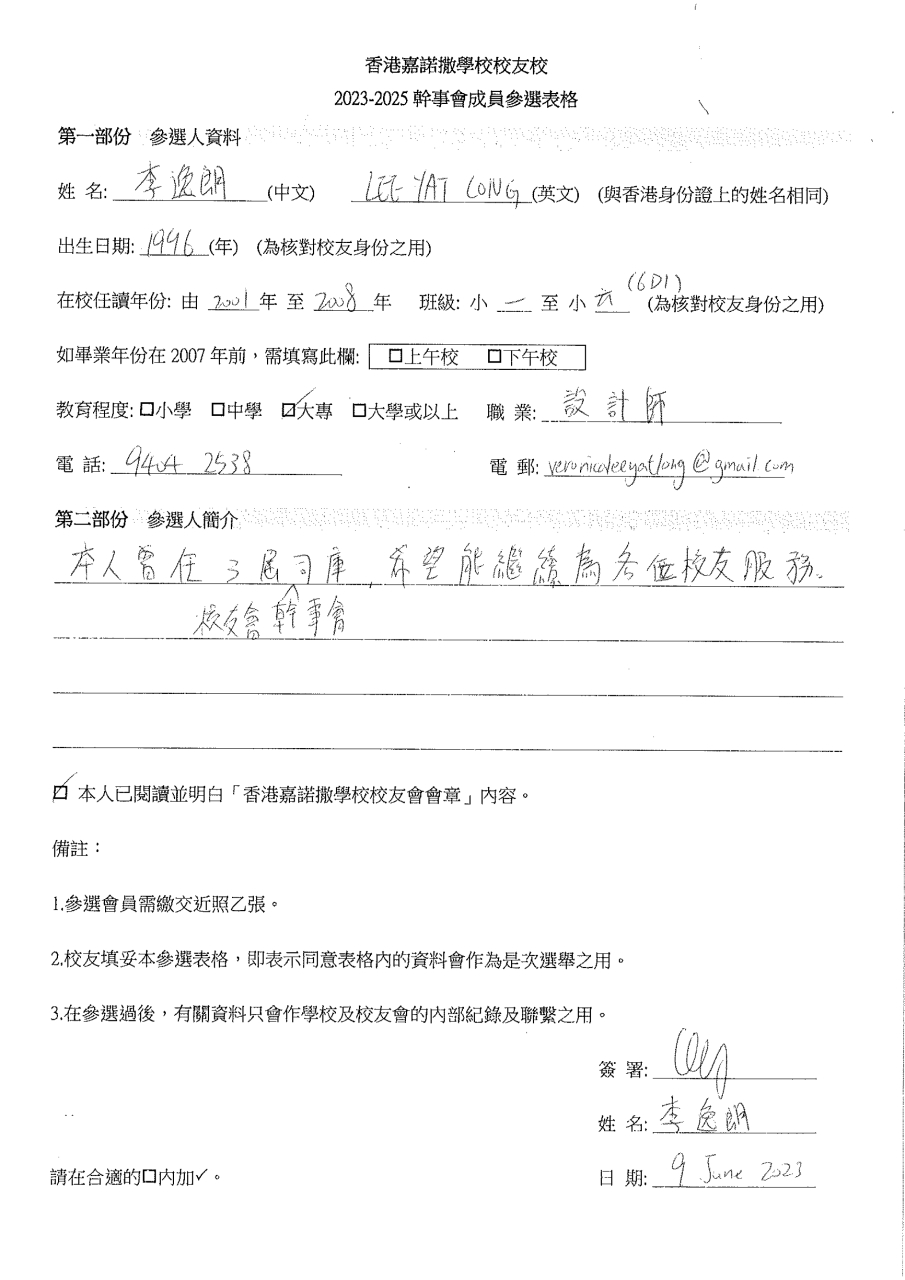 香港嘉諾撒學校校友校
2023-2025 幹事會成員參選表格
第一部份 參選人資料
姓 名: 李逸朗 (中文) LEE YAT LONG (英文) (與香港身份證上的姓名相同)
出生日期: 1996 (年) (為核對校友身份之用)
在校任讀年份: 由 2001 年 至 2008 年 班級: 小 一 至 小 六 (6D1) (為核對校友身份之用)
如畢業年份在 2007 年前，需填寫此欄: □上午校 □下午校
教育程度: □小學 □中學 ☑大專 □大學或以上 職 業: 設計師
電 話: 9404 2538 電 郵: veronicaleeyatlong@gmail.com
第二部份 參選人簡介
本人曾任3屆司庫，希望能繼續為各位校友服務。
校友會幹事會
☑ 本人已閱讀並明白「香港嘉諾撒學校校友會會章」內容。
備註：
1.參選會員需繳交近照乙張。
2.校友填妥本參選表格，即表示同意表格內的資料會作為是次選舉之用。
3.在參選過後，有關資料只會作學校及校友會的內部紀錄及聯繫之用。
簽 署:
姓 名: 李逸朗
請在合適的□內加✓。 日 期: 9 June 2023